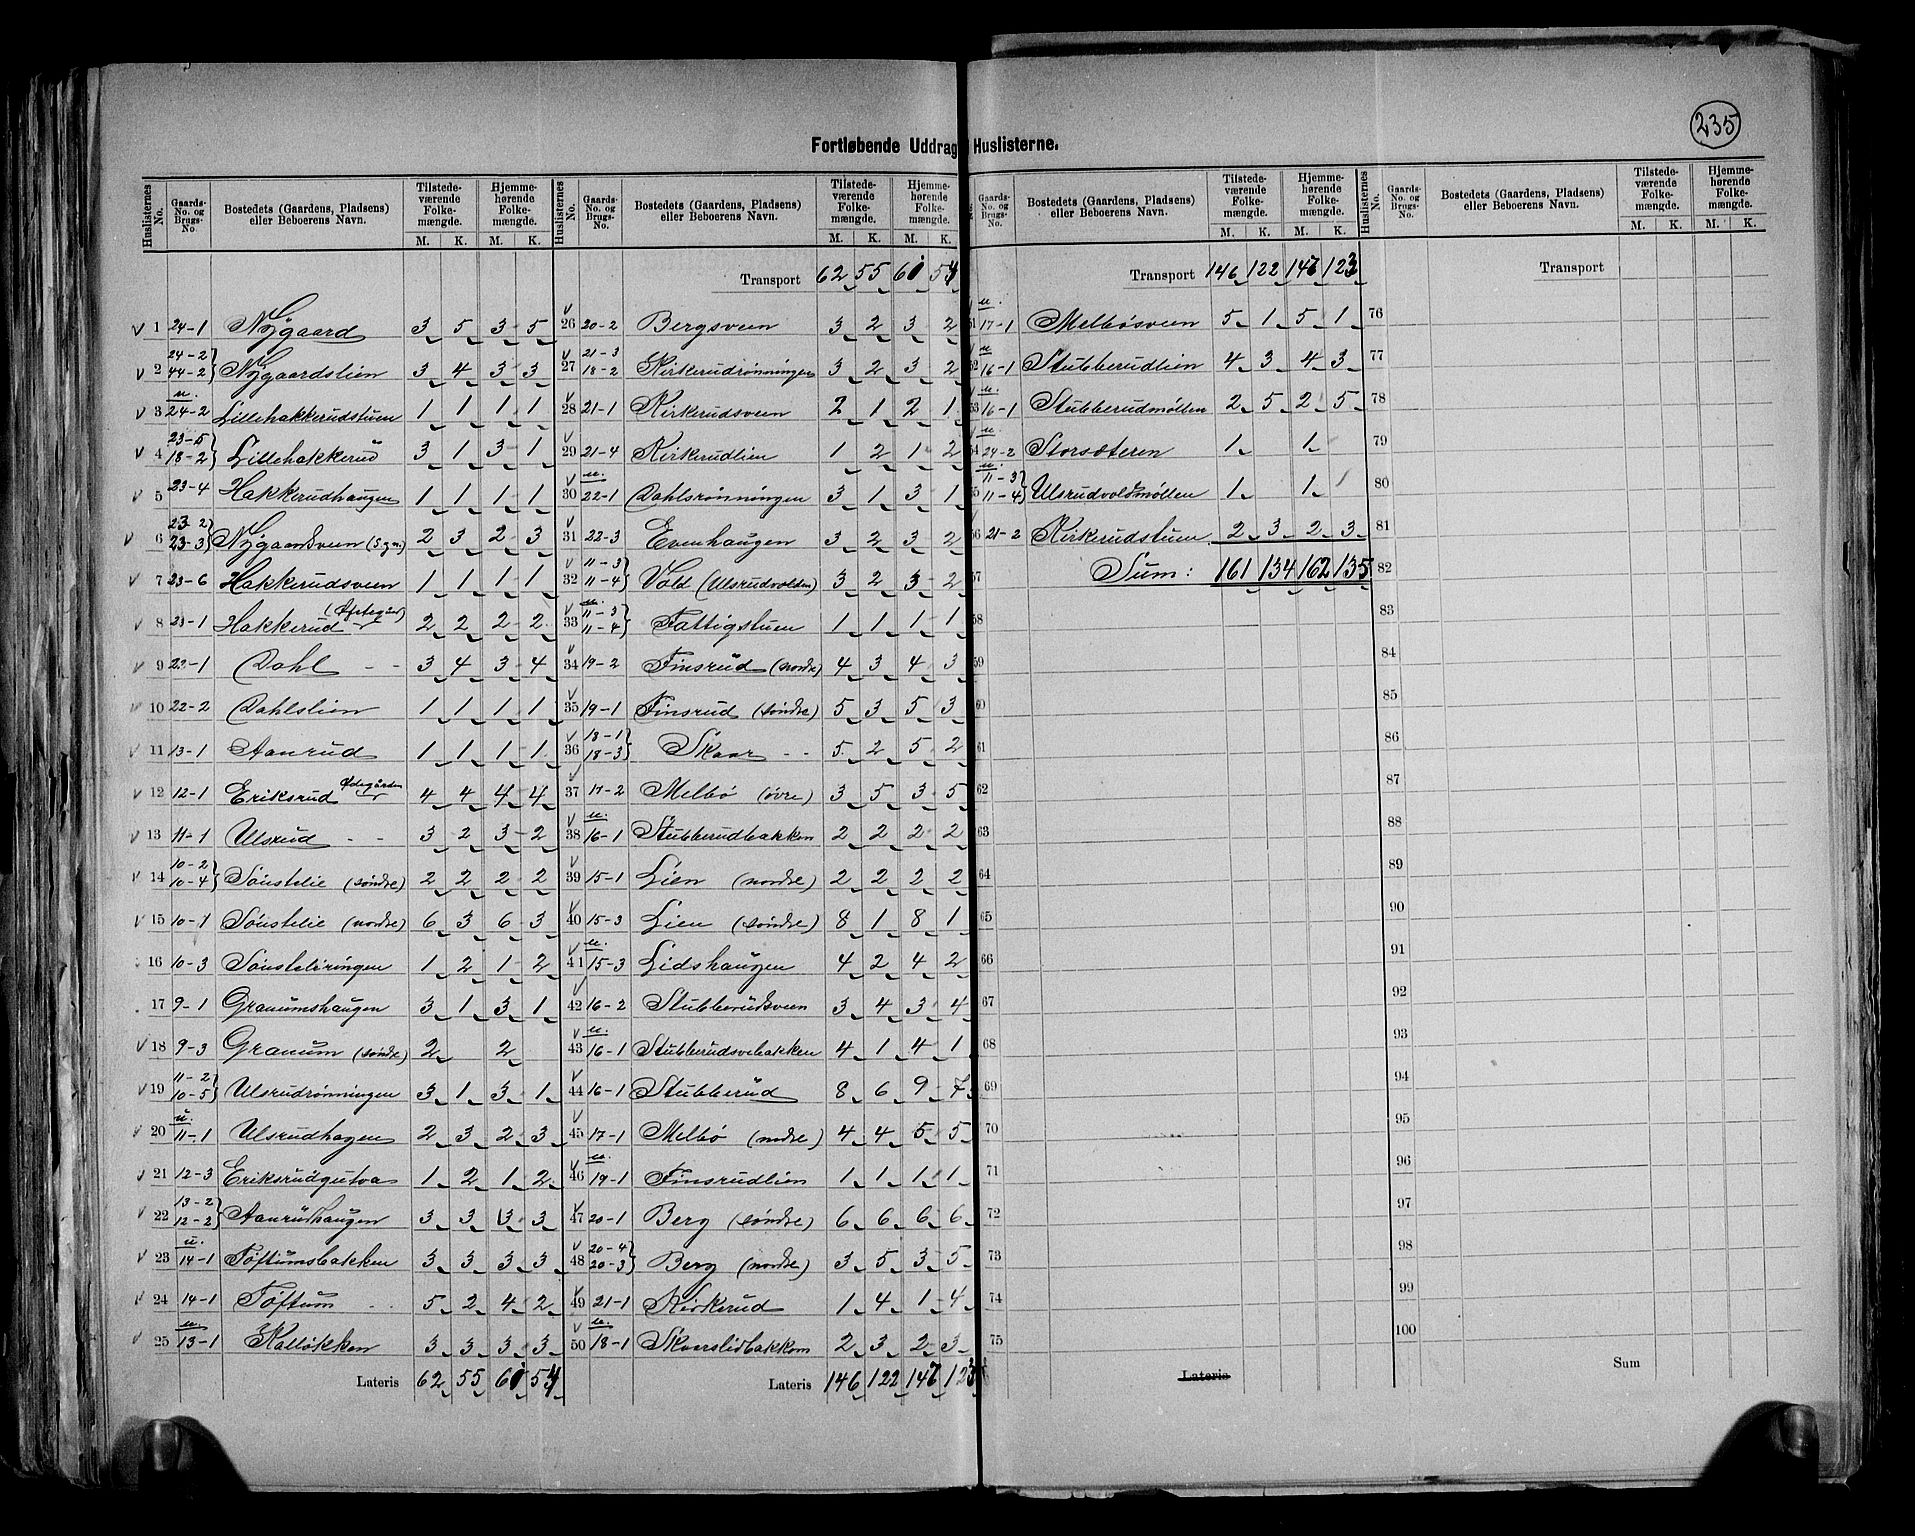 235
Fortløbende Uddrag Huslisterne.
Huslisternes No. Gaards-No. og Brugs-No. Bostedets (Gaardens, Pladsens) eller Beboerens Navn. Tilstedeværende Folkemængde. M. K. Hjemmehørende Folkemængde. M. K.
1 24-1 Nygaard 3 5 3 5
2 24-2 44-2 Nygaardslien 3 4 3 3
3 u. 24-2 Lillehakkerudstuen 1 1 1 1
4 23-5 18-2 Lillehakkerud 3 1 3 1
5 23-4 Hakkerudhaugen 1 1 1 1
6 23-2 23-3 Nygaardsveen 2 3 2 3
7 23-6 Hakkerudsveen 1 1 1 1
8 23-1 Hakkerud 2 2 2 2
9 22-1 Dahl 3 4 3 4
10 22-2 Dahlslien 1 1 1 1
11 13-1 Aanrud 1 1 1 1
12 12-1 Eriksrud Ødegården 4 4 4 4
13 11-1 Ulsrud 3 2 3 2
14 10-2 10-4 Sønstelie (søndre) 2 2 2 2
15 10-1 Sønstelie (nordre) 6 3 6 3
16 10-3 Sønsteliringen 1 2 1 2
17 9-1 Granumshaugen 3 1 3 1
18 9-3 Granum (søndre) 2 2
19 11-2 10-5 Ulsrudrønningen 3 1 3 1
20 u. 11-1 Ulsrudhagen 2 3 2 3
21 12-3 Eriksrudgutua 1 2 1 2
22 13-2 12-2 Aanrudhaugen 3 3 3 3
23 u. 14-1 Tøftumsbakken 3 3 3 3
24 14-1 Tøftum 5 2 4 2
25 u. 13-1 Kalløkken 3 3 3 3
Lateris 62 55 61 54
Huslisternes No. Gaards-No. og Brugs-No. Bostedets (Gaardens, Pladsens) eller Beboerens Navn. Tilstedeværende Folkemængde. M. K. Hjemmehørende Folkemængde. M. K.
Transport 62 55 61 54
26 20-2 Bergsveen 3 2 3 2
27 21-3 18-2 Kirkerudrønningen 3 2 3 2
28 21-1 Kirkerudsveen 2 1 2 1
29 21-4 Kirkerudlien 1 2 1 2
30 u. 22-1 Dahlsrønningen 3 1 3 1
31 22-3 Evenhaugen 3 2 3 2
32 11-3 11-4 Vold (Ulsrudvolden) 3 2 3 2
33 u. 11-3 11-4 Fattigstuen 1 1 1 1
34 19-2 Finsrud (nordre) 4 3 4 3
35 19-1 Finsrud (søndre) 5 3 5 3
36 18-1 18-3 Skaar 5 2 5 2
37 17-2 Melbø (øvre) 3 5 3 5
38 u. 16-1 Stubberudbakken 2 2 2 2
39 15-1 Lien (nordre) 2 2 2 2
40 15-3 Lien (søndre) 8 1 8 1
41 u. 15-3 Lidshaugen 4 2 4 2
42 16-2 Stubberudsveen 3 4 3 4
43 u. 16-1 Stubberudsvebakken 4 1 4 1
44 16-1 Stubberud 8 6 9 7
45 17-1 Melbø (nedre) 4 4 5 5
46 u. 19-1 Finsrudlien 1 1 1 1
47 20-1 Berg (søndre) 6 6 6 6
48 20-4 20-3 Berg (nordre) 3 5 3 5
49 21-1 Kirkerud 1 4 1 4
50 u. 18-1 2 3 2 3
Lateris 146 122 147 123
Gaards-No. og Brugs-No. Bostedets (Gaardens, Pladsens) eller Beboerens Navn. Tilstedeværende Folkemængde. M. K. Hjemmehørende Folkemængde. M. K.
Transport 146 122 147 123
51 u. 17-1 Melbøsveen 5 1 5 1
52 u. 16-1 Stubberudlien 4 3 4 3
53 u. 16-1 Stubberudmøllen 2 5 2 5
54 u. 24-2 Storsæteren 1 1
55 u. 11-3 11-4 Ulsrudvoldmøllen 1 1
56 21-2 Kirkerudstuen 2 3 2 3
57 Sum: 161 134 162 135
58
59
60
61
62
63
64
65
66
67
68
69
70
71
72
73
74
75
Lateris
Huslisternes No. Gaards-No. og Brugs-No. Bostedets (Gaardens, Pladsens) eller Beboerens Navn. Tilstedeværende Folkemængde. M. K. Hjemmehørende Folkemængde. M. K.
Transport
76
77
78
79
80
81
82
83
84
85
86
87
88
89
90
91
92
93
94
95
96
97
98
99
100
Sum